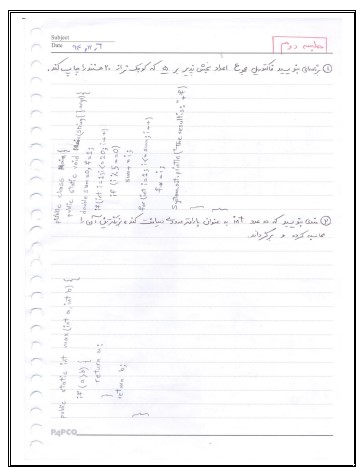 Subject
Date
جلسه دوم
① برنامه‌ای بنویسید فاکتوریل مجموع اعداد بخش پذیر بر 5 که کوچک‌تر از ۲۰ هستند را چاپ کند.
public class Main {
public static void Main(String[] args) {
double sum=0, f=1;
if (int i=1; i<=20; i++)
if (i%5==0)
sum+=i;
for (int i=1; i<=sum; i++)
f*=i;
System.out.println("The result is:"+f)
② متدی بنویسید که دو عدد int به عنوان پارامتر ورودی دریافت کند و بزرگترین آن را
محاسبه کرده و برگرداند.
public static int max (int a, int b) {
if (a>b) {
return a;
}
return b;
PAPCO